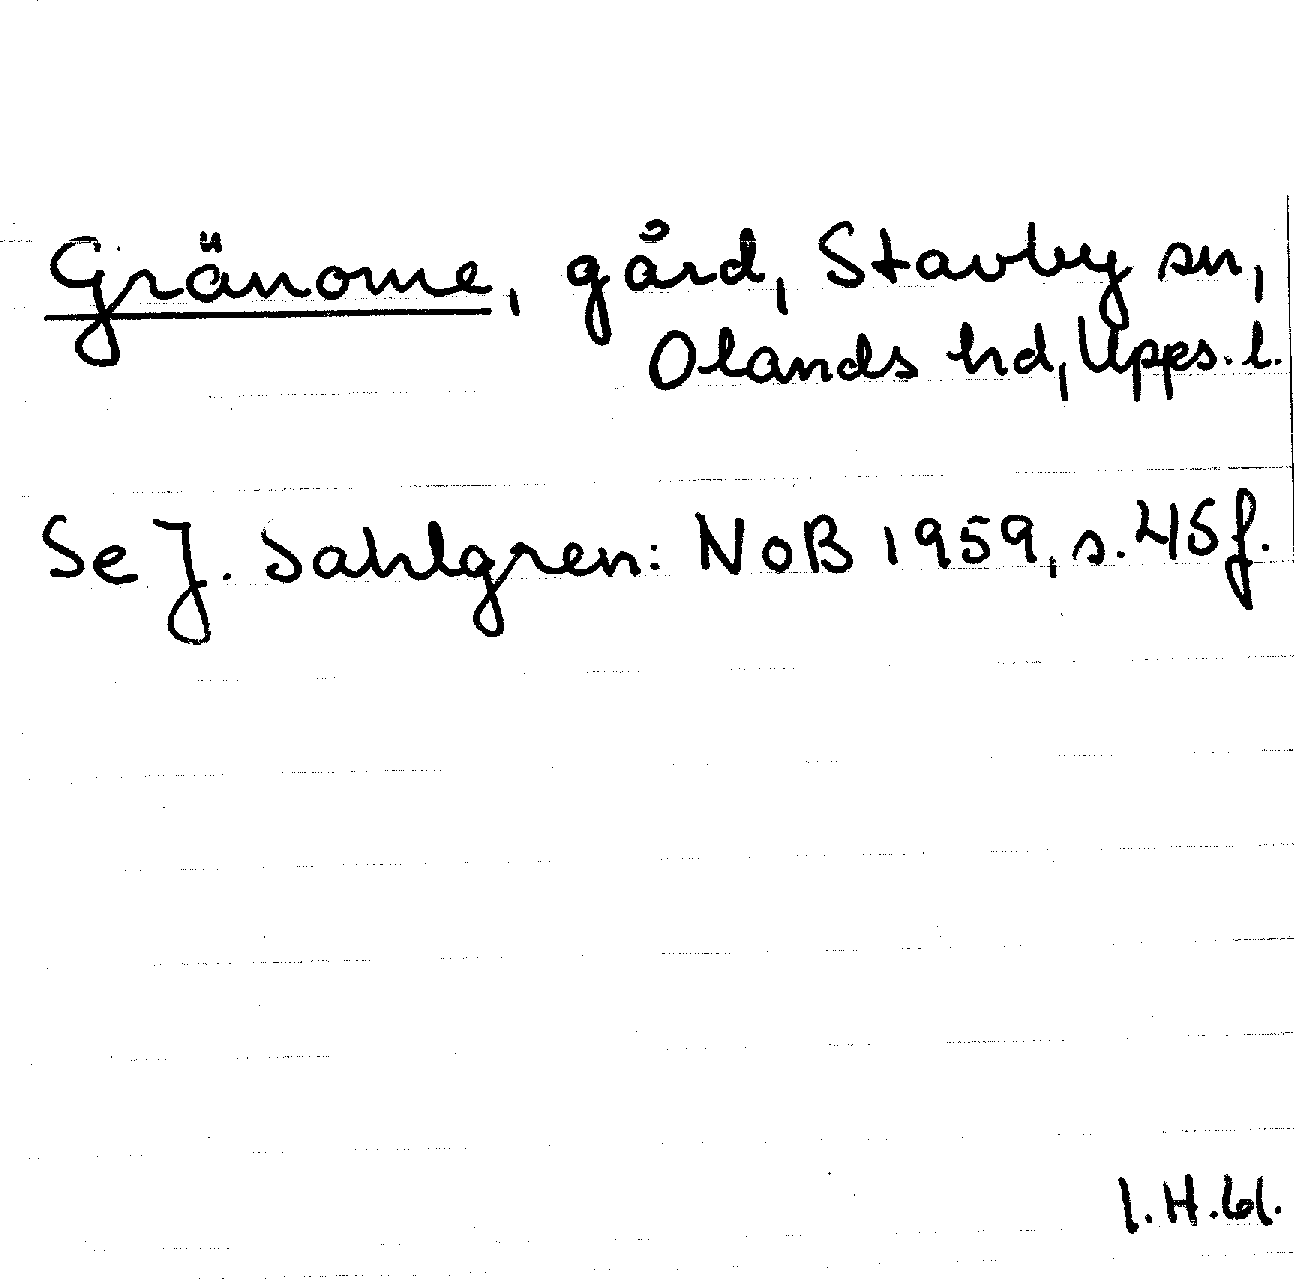 Gränome, gård, Stavby sn,
Olands hd, Upps. l.
Se J. Sahlgren: NoB 1959, s. 45 f.
I.H.61.